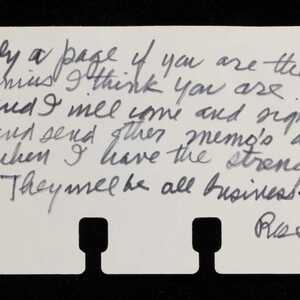 ly a page if you are the
genius I think you are.
and I will come and sign
and send other memo's a
when I have the stren
They will be all business
Ros